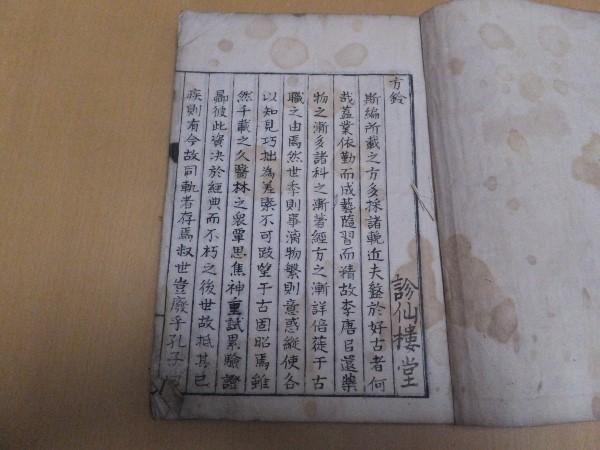 方銓
診仙樓堂
斯編所載之方多採諸輓近夫盤於好古者何
哉蓋業依勤而成藝隨習而精故李唐已還藥
物之漸多諸科之漸著經方之漸詳倍蓰于古
職之由焉然世季則事滴物繁則意惑縱使各
以知見巧拙為差素不可跂望于古固昭焉雖
然千載之久醫林之衆覃思焦神重試累驗證
彼此資决於經典而不朽之後世故柢其已
疾則有今故同軌者存焉叔世豈廢乎孔子